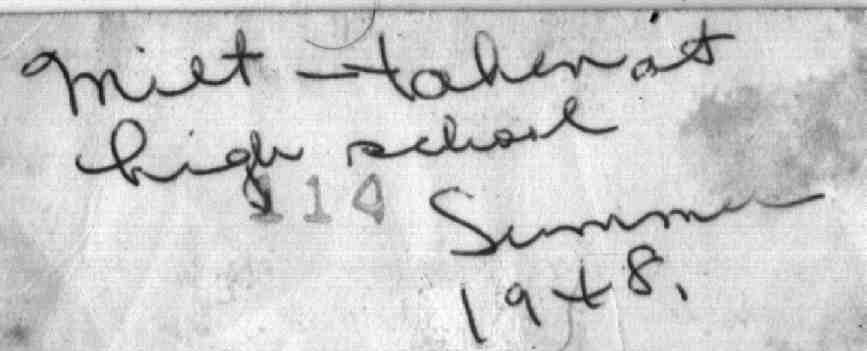 Milt - taken at
high school
114
Summer
1948.